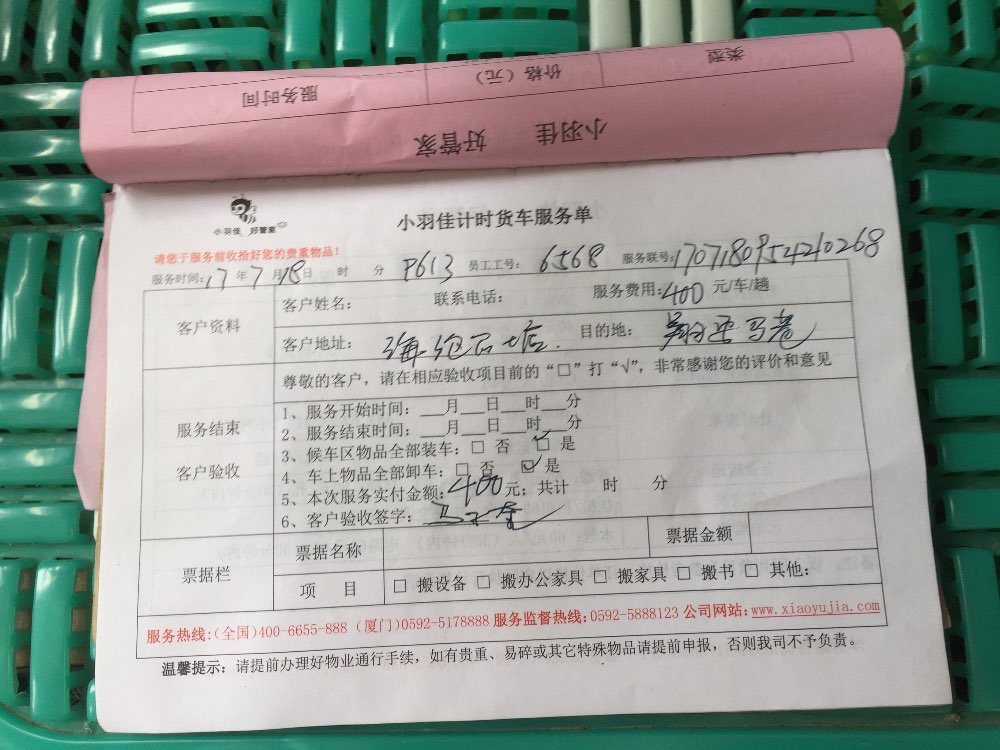 类型
价格（元）
服务时间
小羽佳 好管家
小羽佳 好管家
小羽佳计时货车服务单
请您于服务前收拾好您的贵重物品！
服务时间：17年7月18日 时 分 P613 员工工号：6568 服务联号：170718095424210268
客户资料
客户姓名： 联系电话： 服务费用：400元/车/趟
客户地址： 海沧 店 目的地： 翔安马巷
尊敬的客户，请在相应验收项目前的“□”打“√”，非常感谢您的评价和意见
服务结束
客户验收
1、服务开始时间：___月___日___时___分
2、服务结束时间：___月___日___时___分
3、候车区物品全部装车：□ 否 ☑ 是
4、车上物品全部卸车：□ 否 ☑ 是
5、本次服务实付金额：400元；共计 时 分
6、客户验收签字：
票据栏
票据名称 票据金额
项 目 □ 搬设备 □ 搬办公家具 □ 搬家具 □ 搬书 □ 其他：
服务热线：(全国)400-6655-888 (厦门)0592-5178888 服务监督热线：0592-5888123 公司网站：www.xiaoyujia.com
温馨提示：请提前办理好物业通行手续，如有贵重、易碎或其它特殊物品请提前申报，否则我司不予负责。